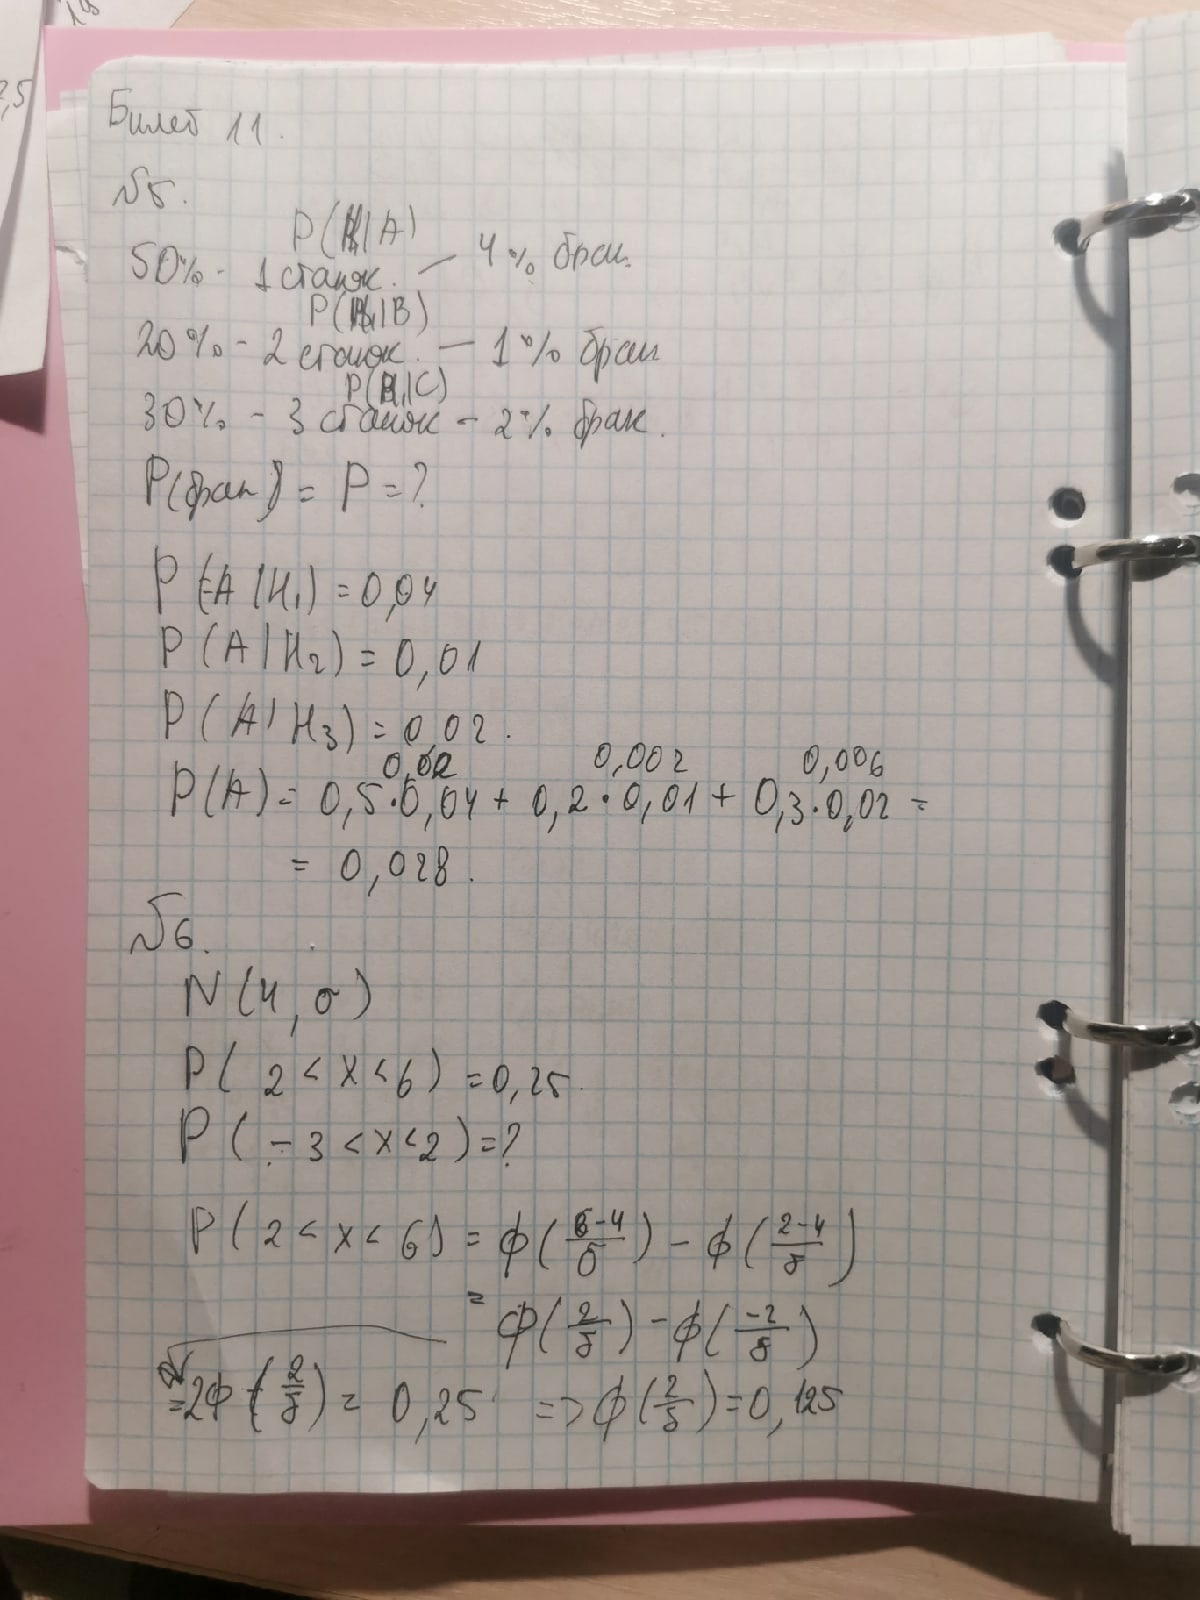 19
7,5
Билет 11.
№5.
P(H|A)
50% - 1 станок. - 4% брак.
P(H|B)
20% - 2 станок. - 1% брак
P(H|C)
30% - 3 станок - 2% брак.
P(брак) = P = ?
P(A|H₁) = 0,04
P(A|H₂) = 0,01
P(A|H₃) = 0,02.
0,02 0,002 0,006
P(A) = 0,5·0,04 + 0,2·0,01 + 0,3·0,02 =
= 0,028.
№6.
N(4, σ)
P( 2 < x < 6) = 0,25.
P( -3 < x < 2) = ?
P( 2 < x < 6) = ϕ((6-4)/σ) - ϕ((2-4)/σ)
= ϕ(2/σ) - ϕ(-2/σ)
= 2ϕ(2/σ) = 0,25 => ϕ(2/σ) = 0,125